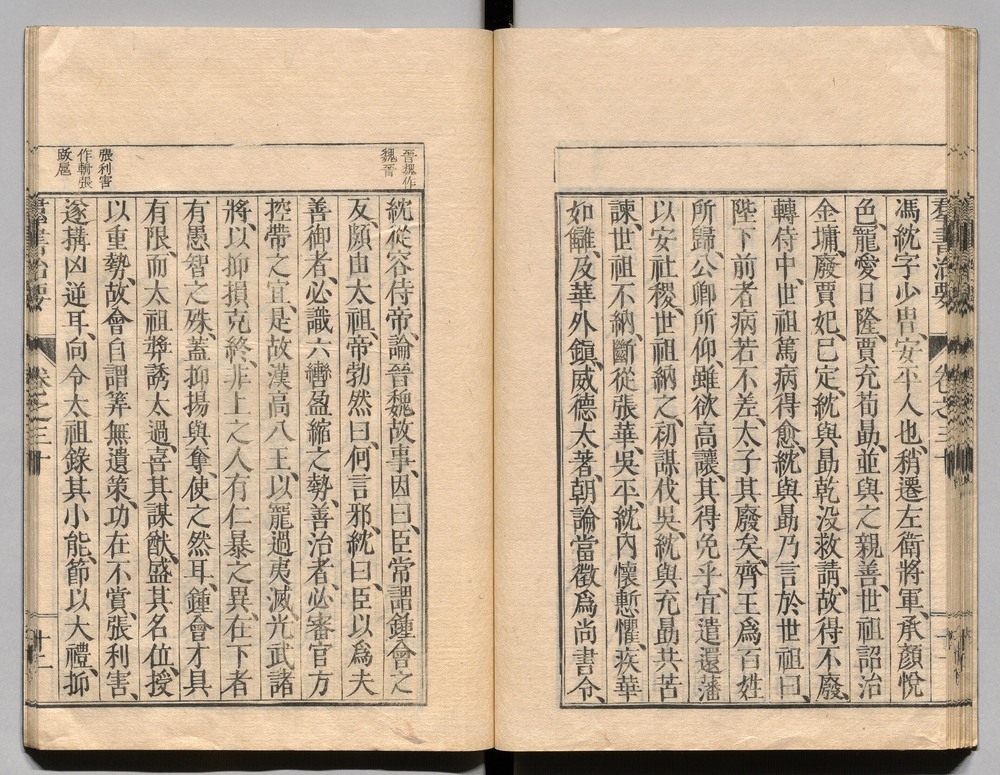 馮紞字少冑安平人也、稍遷左衛將軍、承顏悅
色、寵愛日隆、賈充荀勗、並與之親善、世祖詔治
金墉、廢賈妃、已定、紞與勗乾没救請、故得不廢、
轉侍中、世祖篤病得愈、紞與勗乃言於世祖曰、
陛下前者病若不差、太子其廢矣、齊王爲百姓
所歸、公卿所仰、雖欲高讓、其得免乎、宜遣還藩
以安社稷、世祖納之、初謀伐吳、紞與充勗共苦
諫、世祖不納、斷從張華、吳平、紞內懷慙懼、疾華
如讎、及華外鎮、威德太著、朝論當徵爲尚書令、
羣書治要 卷之三十
晉魏作
魏晉
紞從容侍帝、論晉魏故事、因曰、臣常謂鍾會之
反、頗由太祖、帝勃然曰、何言邪、紞曰、臣以爲夫
善御者、必識六轡盈縮之勢、善治者、必審官方
控帶之宜、是故漢高八王、以寵過夷滅、光武諸
將、以抑損克終、非上之人有仁暴之異、在下者
有愚智之殊、蓋抑揚與奪、使之然耳、鍾會才具
有限、而太祖奬誘太過、喜其謀猷、盛其名位、授
以重勢、故會自謂筭無遺策、功在不賞、張利害、
遂搆凶逆耳、向令太祖錄其小能、節以大禮、抑
張利害
作輈張
跋扈
羣書治要 卷之三十 十二